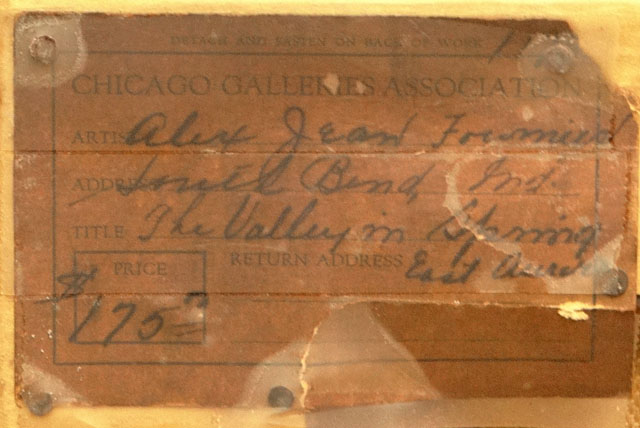 DETACH AND FASTEN ON BACK OF WORK
CHICAGO GALLERIES ASSOCIATION
ARTIST Alex Jean Fournier
ADDRE South Bend, Ind.
TITLE: The Valley in Spring
PRICE RETURN ADDRESS East
$175